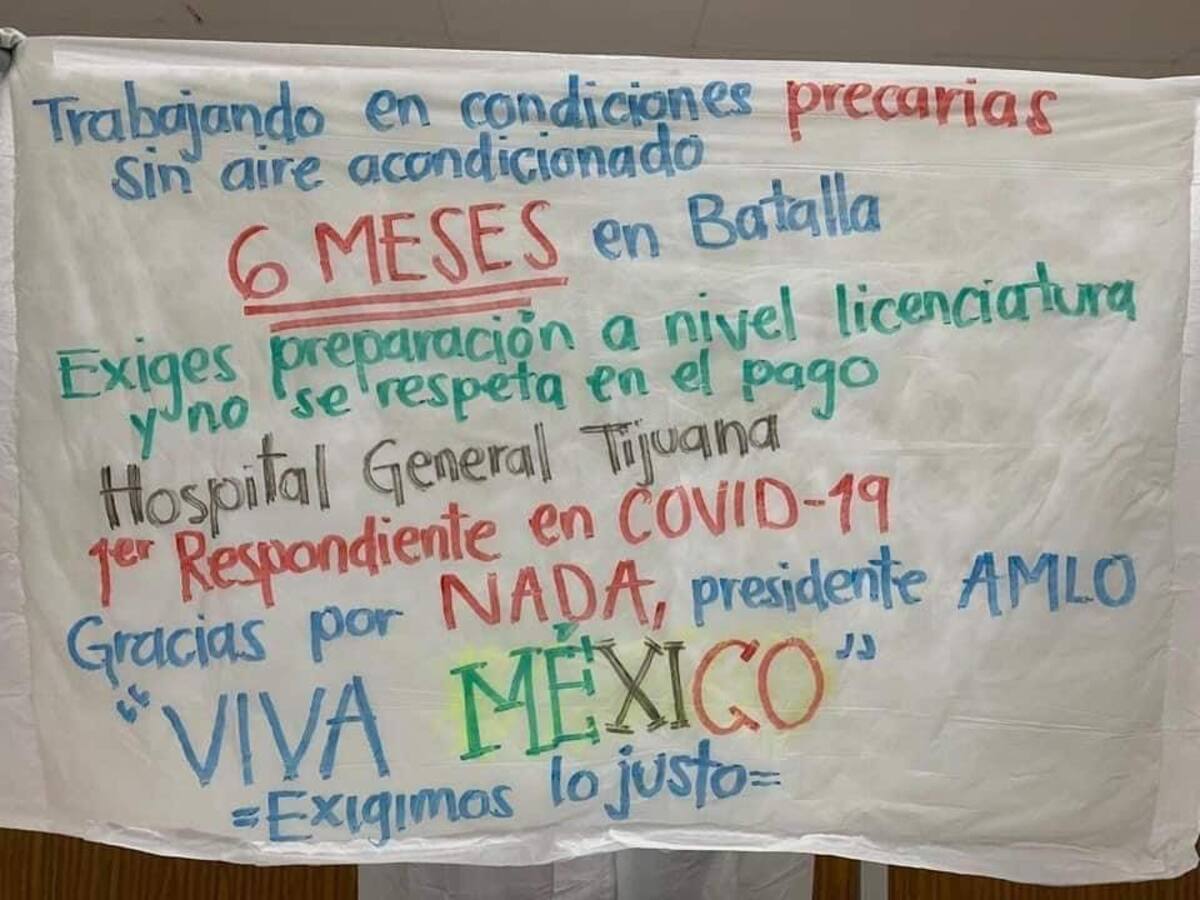 Trabajando en condiciones precarias
sin aire acondicionado
6 MESES en Batalla
Exiges preparación a nivel licenciatura
y no se respeta en el pago
Hospital General Tijuana
1er Respondiente en COVID-19
Gracias por NADA, presidente AMLO
"VIVA MÉXICO"
=Exigimos lo justo=